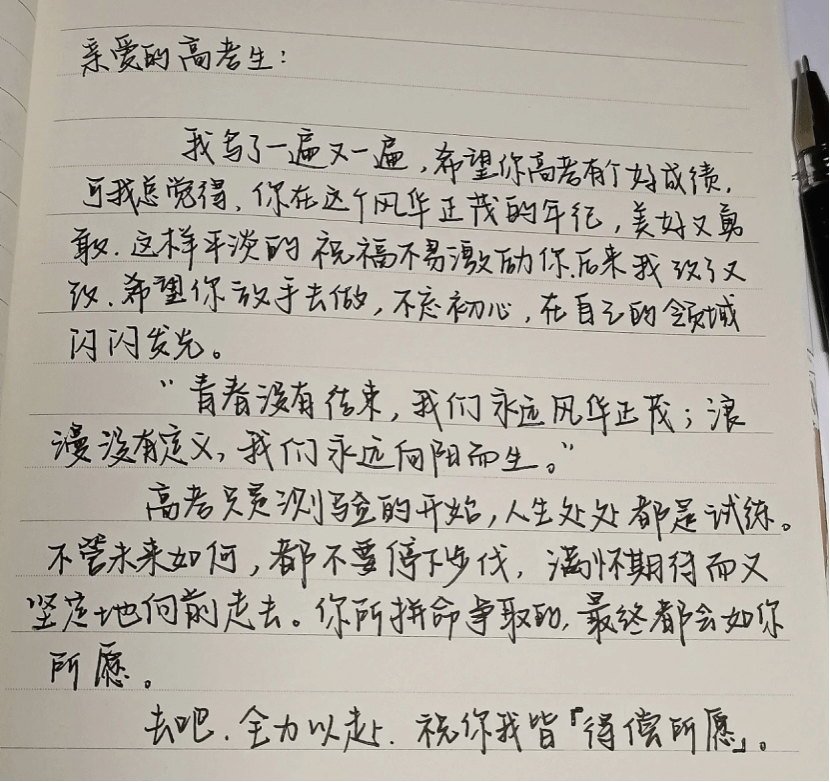 亲爱的高考生：
我写了一遍又一遍，希望你高考有个好成绩，
可我总觉得，你在这个风华正茂的年纪，美好又勇
敢．这样平淡的祝福不易激励你．后来我改了又
改．希望你放手去做，不忘初心，在自己的领域
闪闪发光。
“青春没有结束，我们永远风华正茂；浪
漫没有定义，我们永远向阳而生。”
高考只是测验的开始，人生处处都是试练。
不管未来如何，都不要停下步伐，满怀期待而又
坚定地向前走去。你所拼命争取的，最终都会如你
所愿。
去吧．全力以赴．祝你我皆『得偿所愿』。